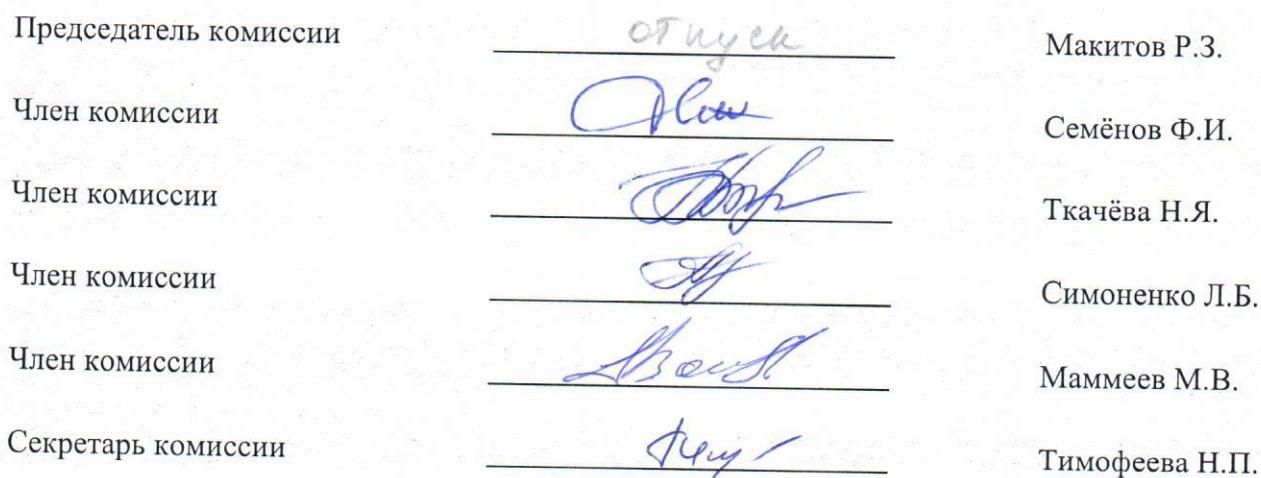 Председатель комиссии отпуск Макитов Р.З.
Член комиссии Семёнов Ф.И.
Член комиссии Ткачёва Н.Я.
Член комиссии Симоненко Л.Б.
Член комиссии Маммеев М.В.
Секретарь комиссии Тимофеева Н.П.